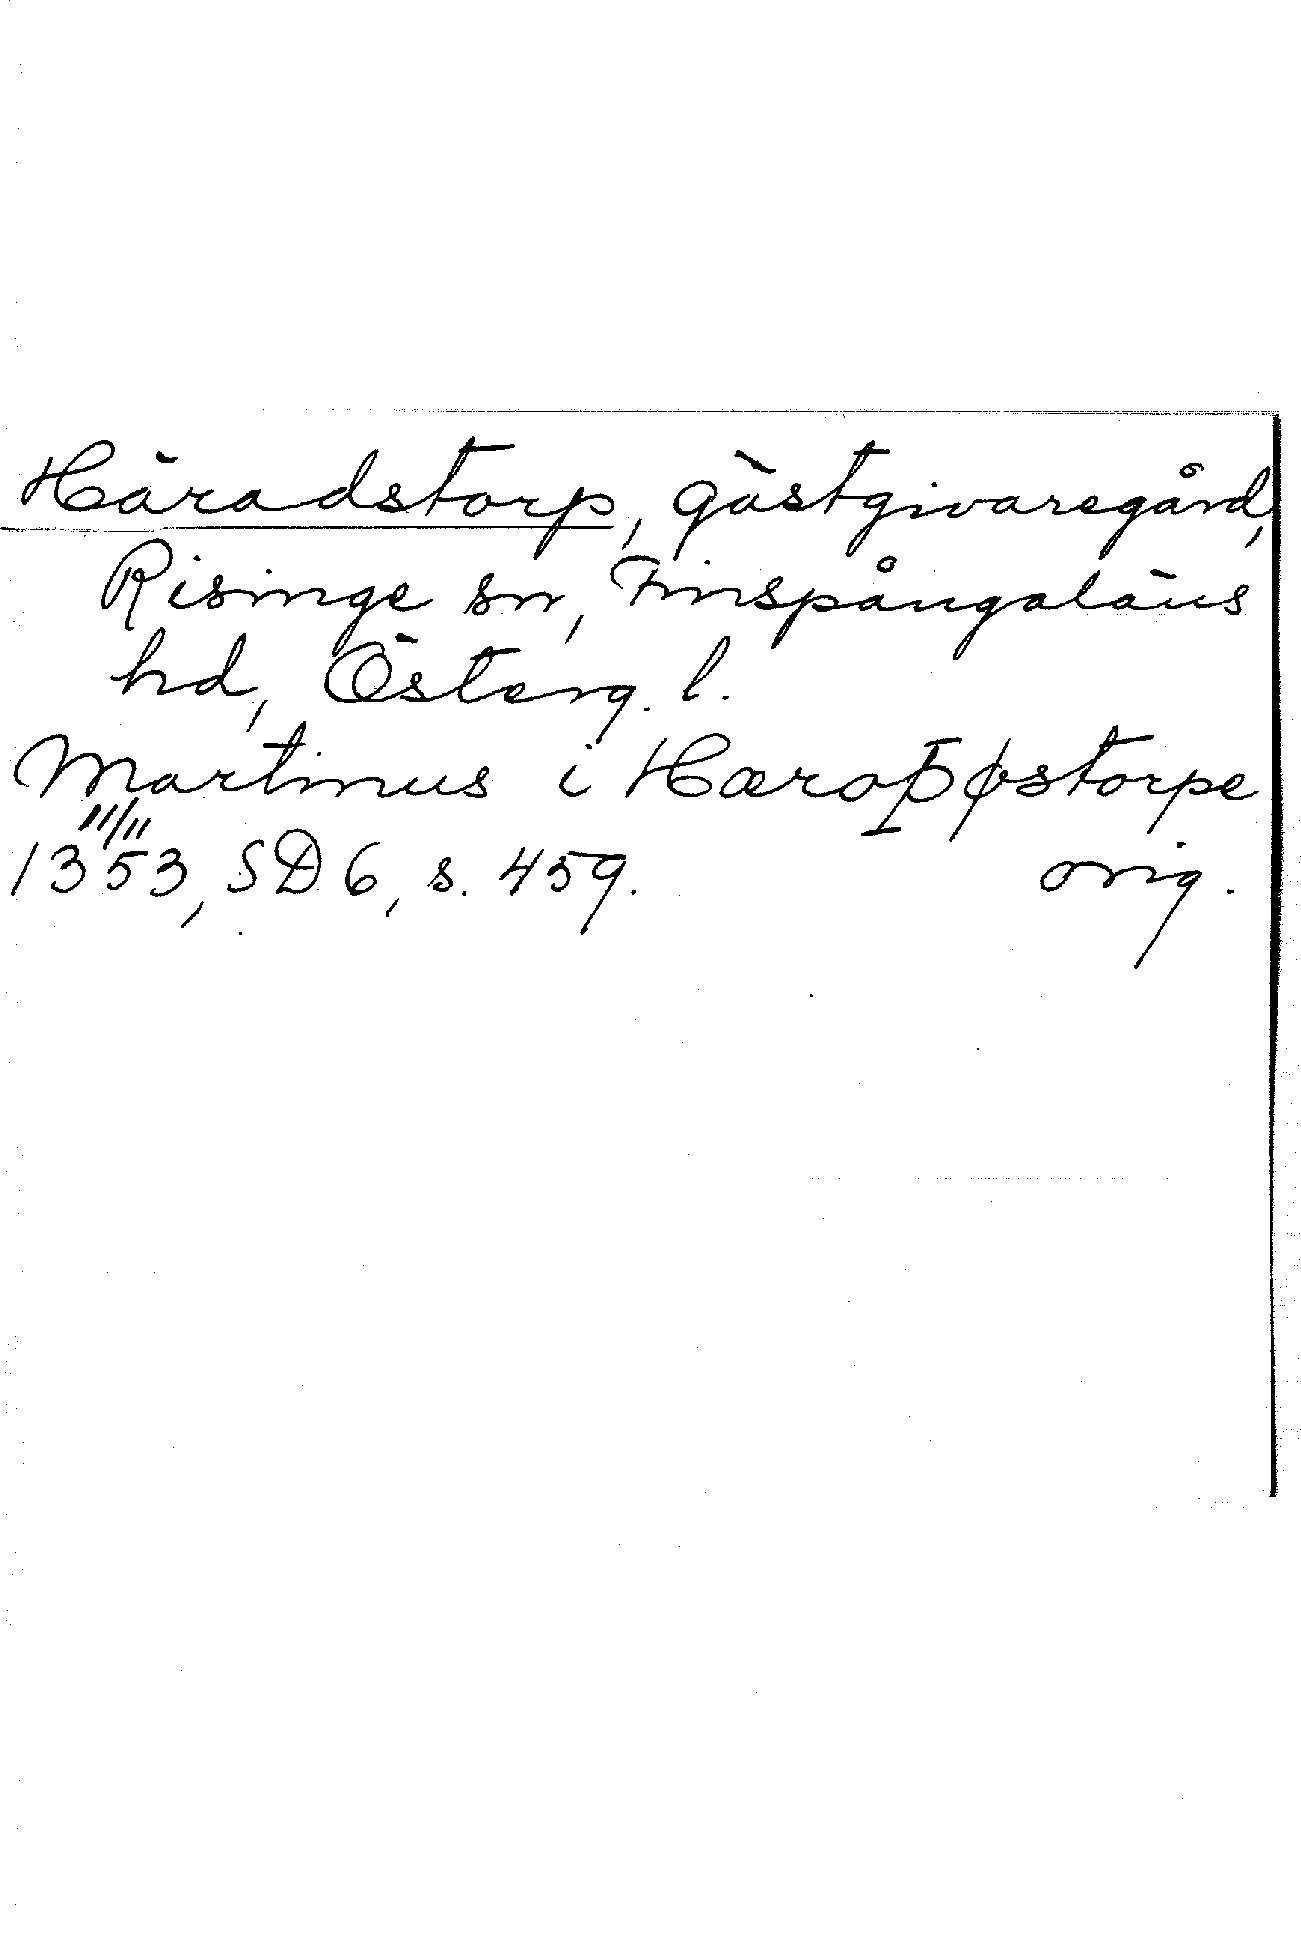 Häradstorp, gästgivaregård,
Risinge sn, Finspångaläns
hd, Österg. l.
Martinus i Hæraþøstorpe
11/11
1353, SD 6, s. 459. orig.